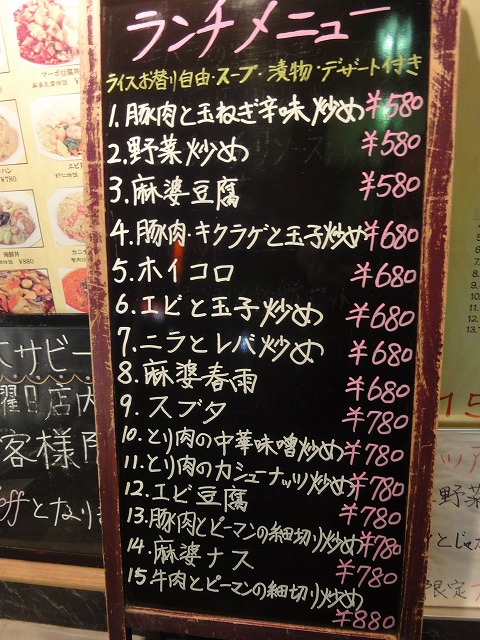 ランチメニュー
ライスお替り自由・スープ・漬物・デザート付き
1. 豚肉と玉ねぎ辛味炒め ¥580
2. 野菜炒め ¥580
3. 麻婆豆腐 ¥580
4. 豚肉・キクラゲと玉子炒め ¥680
5. ホイコロ ¥680
6. エビと玉子炒め ¥680
7. ニラとレバ炒め ¥680
8. 麻婆春雨 ¥680
9. スブタ ¥780
10. とり肉の中華味噌炒め ¥780
11. とり肉のカシューナッツ炒め ¥780
12. エビ豆腐 ¥780
13. 豚肉とピーマンの細切り炒め ¥780
14. 麻婆ナス ¥780
15 牛肉とピーマンの細切り炒め ¥880
マーボ豆腐丼
¥780
海鮮丼
¥880
サビー
曜日店内
客様
offとなり
野菜
限定